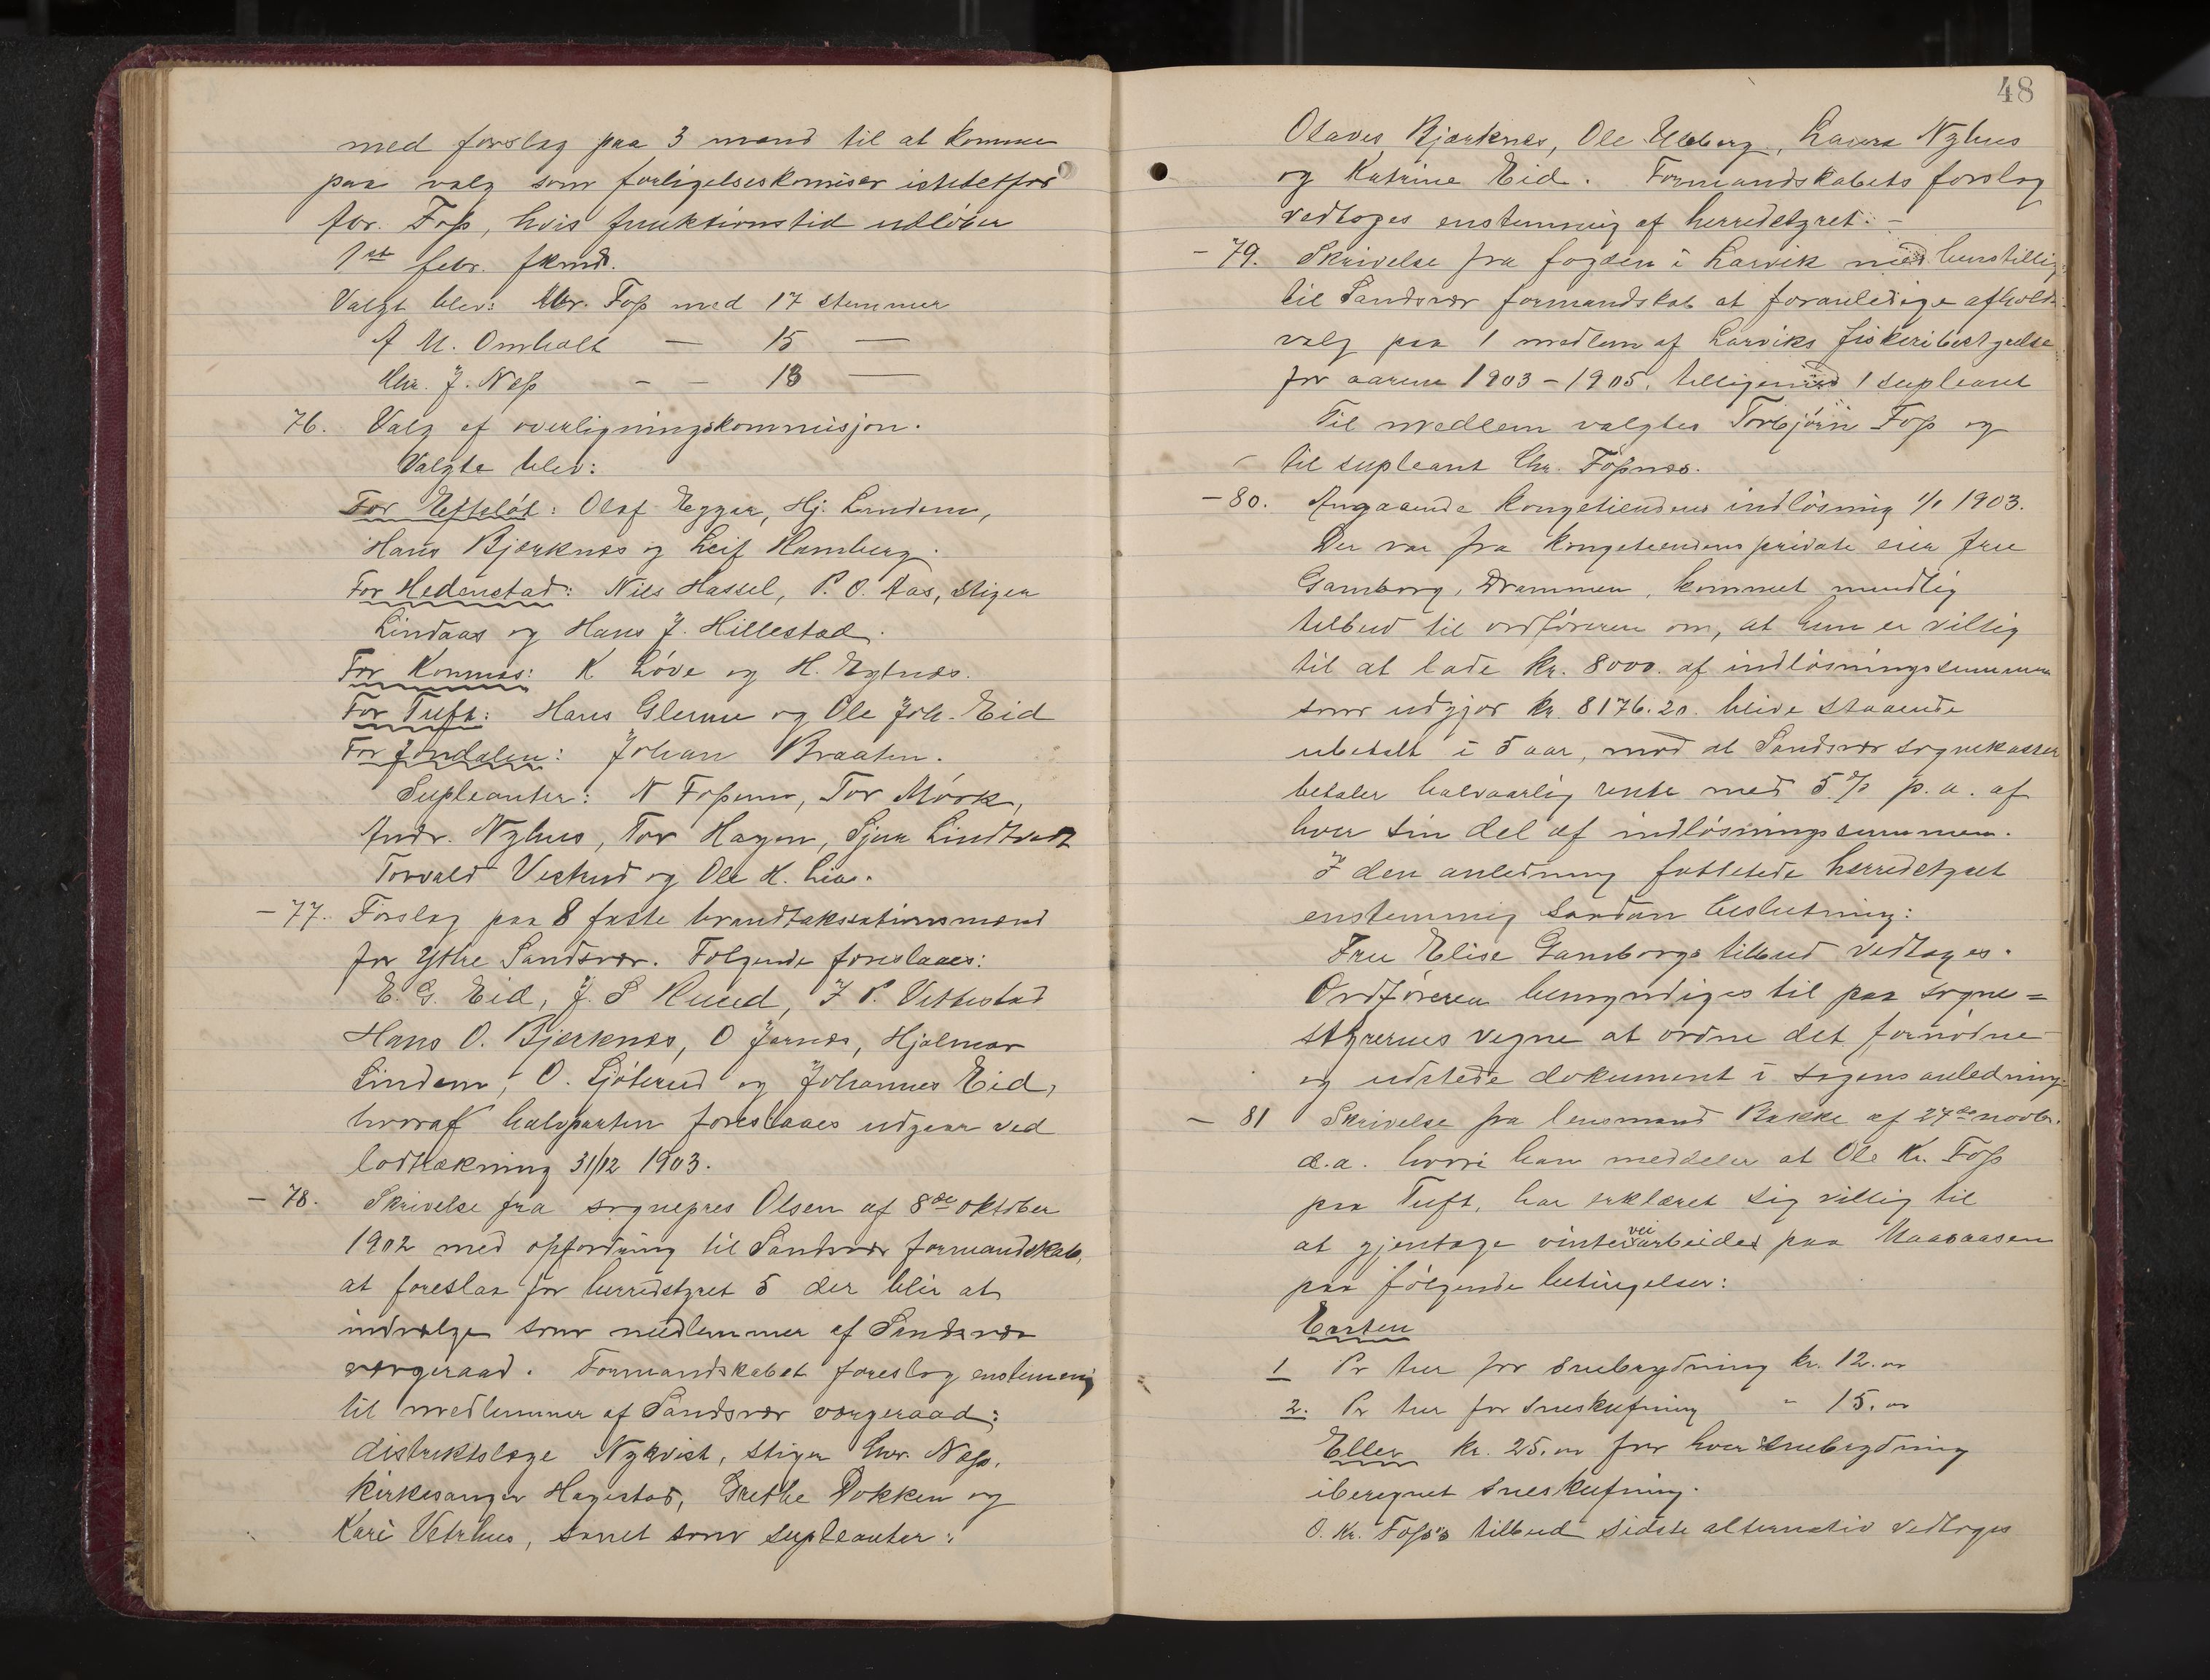 med forslag paa 3 mand til at komme
paa valg som forligelseskomisær istedetfor
for. Foss, hvis funktionstid udløber
1ste febr. fkmd.
Valgt blev: Chr. Foss med 17 stemmer
A M. Omholt — 15 —
Chr. J. Næss - - 13 —
76. Valg af overligningskommisjon.
Valgte blev:
For Efteløt: Olaf Eggar, Hj. Lindem,
Hans Bjerknæs og Leif Ramberg.
For Hedenstad: Nils Hassel, P. O. Aas, Stiger
Lindaas og Hans J. Hillestad.
For Komnæs: K. Løve og H. Egtnæs.
For Tuft: Hans Glenne og Ole Joh. Eid
For Jondalen: Johan Braaten.
Supleanter: N Fossum, Tor Mørk,
Andr. Nyhus, Tor Hagen, Sjur Lindtvedt
Torvald Vestrud og Ole K. Lia.
- 77. Forslag paa 8 faste brandtakssationsmænd
for Ytre Sandsvær. Følgende foreslaaes:
E. G. Eid, J. S Ruud, J P. Vittestad
Hans O. Bjerknæs, O Jarnæs, Hjalmar
Lindem, O. Gjøterud og Johannes Eid,
hvoraf halvparten foreslaaes udgaar ved
lodtrækning 31/12 1903.
- 78. Skrivelse fra sognepres Olsen af 8de oktober
1902 med opfordring til Sandsvær formandskab,
at foreslaa for herredstyret 5 der blir at
indvælge som medlemmer af Sandsvær
værgeraad. Formandskabet foreslog enstemmig
til medlemmer af Sandsvær værgeraad:
distriktslæge Nykvist, stiger Chr. Næss,
kirkesanger Hagestad, Grethe Dokken og
Kari Vetrhus, samt som supleanter:
48
Olaves Bjerknæs, Ole Ulleberg, Laura Nyhus
og Katrine Eid. Formandskabets forslag
vedtoges enstemmig af herredstyret. -
- 79. Skrivelse fra fogden i Larvik med henstilling
til Sandsvær formandskab at foranledige afholdt
valg paa 1 medlem af Larviks fiskeribestyrelse
for aarene 1903-1905, tilligemed 1 supleant
Til medlem valgtes Torbjørn Foss og
til supleant Chr. Fossnæs.
- 80. Angaaende kongetiendens indløsning 1/1 1903.
Der var fra kongetiendens private eier frue
Gamborg, Drammen, kommet mundlig
tilbud til ordføreren om, at hun er villig
til at lade kr. 8000. af indløsningssummen
som udgjør kr. 8176.20. blive staaende
ubetalt i 5 aar, mod at Sandsvær sognekasser
betaler halvaarlig rente med 5 % p. a. af
hver sin del af indløsningssummen.
I den anledning fattetede herredstyret
enstemmig saadan beslutning:
Frue Elise Gamborgs tilbud vedtages.
Ordføreren bemyndiges til paa sogne=
styrernes vegne at ordne det fornødne
og udstede dokument i sagens anledning.
- 81 Skrivelse fra lensmand Bakke af 27de novbr.
d.a. hvori han meddeler at Ole Kr. Foss
paa Tuft, har erklæret sig villig til
at gjentage vinterveiarbeidet paa Maasaasen
paa følgende betingelser:
Enten
1 Pr tur for snebrydning kr. 12.00
2. Pr tur for sneskufning " 15.00
Eller kr. 25.00 for hver snebrydning
iberegnet sneskufning.
O. Kr. Foss's tilbud sidste alternativ vedtoges